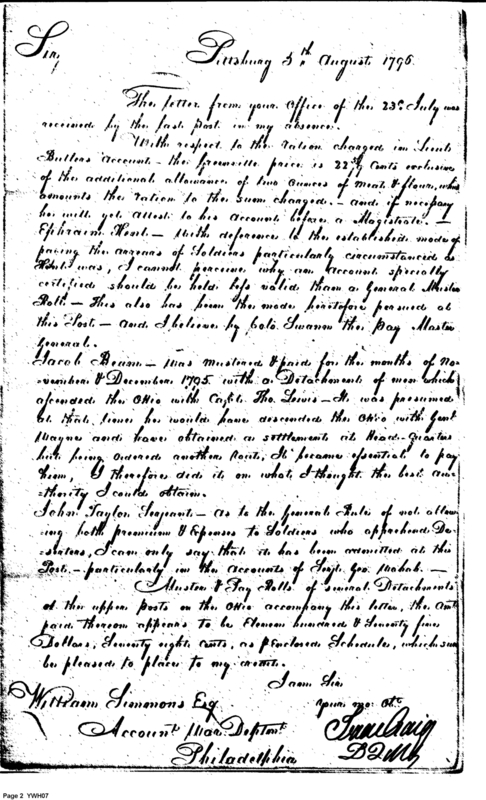 Sir,
Pittsburg 5th August 1796
The letter from your Office of the 23d July was
received by the last post in my absence.
With respect to the ration charged in Lieut
Butlers account - the Greenville price is Cents exclusive
of the additional allowance of two ounces of meat & flour, which
amounts the ration to the sum charged. - and if necessary
he will yet attest to his account before a Magistrate. -
Ephraim - With deference to the established mode of
paying the arrears of Soldiers particularly circumstanced as
was, I cannot perceive why an account specially
certified should be held less valid than a General Muster
Roll - This also has been the mode heretofore persued at
this Post - and I believe by Colo. Swann the Pay Master
General.
Jacob Beam - Was mustered & paid for the months of No-
-vember & December 1795 with a Detachment of men which
ascended the Ohio with Capt. Tho. Lewis - It was presumed
at that time he would have descended the Ohio with Genl
Wayne and have obtained a settlement at Head-Quarters
but being ordered another Rout, It became essential to pay
him, I therefore did it on what I thought the best au-
-thority I could obtain.
John Taylor Sergeant - as to the General Rule of not allow-
-ing both premium & Expenses to Soldiers who apprehend De-
-serters, I can only say that it has been admitted at this
Post - particularly in the accounts of Geo.
Muster & Pay Rolls of several Detachments
at the upper posts on the Ohio accompany this letter, the amt
paid thereon appears to be Eleven hundred & Seventy five
Dollars, Seventy eight Cents, as Enclosed Schedule, which
be pleased to place to my credit.
I am Sir
your mo. Obt.
William Simmons Esq
Isaac Craig
Account. War Deptmt
D Q M
Philadelphia
Page 2 YWH07